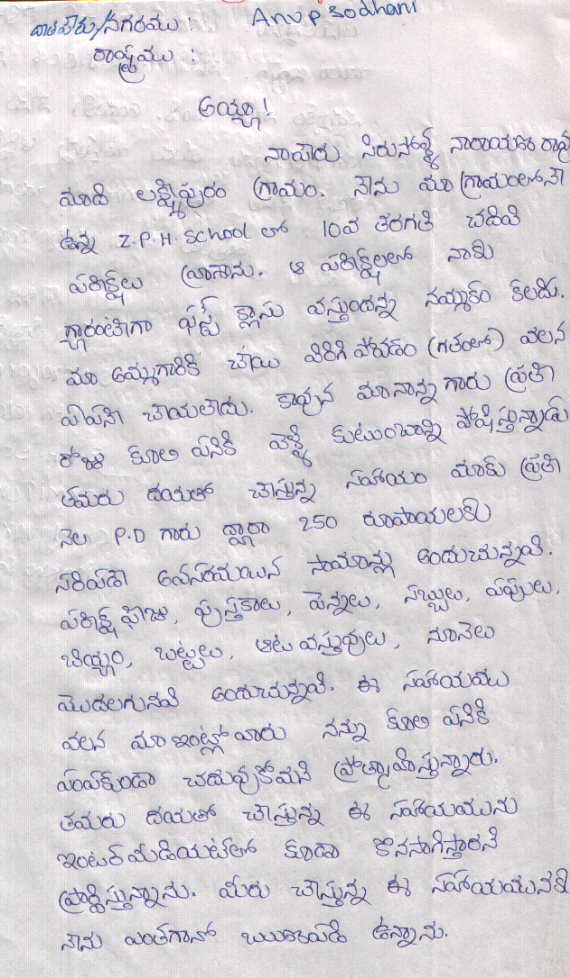 దాతపేరు/నగరము : Anup sodhani
రాష్ట్రము :
అయ్యా!
నాపేరు సిరుసోళ్ళ నారాయణ రావు
మాది లక్ష్మీపురం గ్రామం. నేను మా గ్రామంలోనే
ఉన్న Z.P.H. School లో 10వ తరగతి చదివి
పరీక్షలు వ్రాశాను. ఆ పరీక్షలలో నాకు
గ్యారంటీగా ఫస్ట్ క్లాసు వస్తుందన్న నమ్మకం కలదు.
మా అమ్మగారికి చేయి విరిగి పోవడం (గతంలో) వలన
ఏపని చేయలేదు. కావున మా నాన్న గారు ప్రతి
రోజు కూలి పనికి వెళ్ళి కుటుంబాన్ని పోషిస్తున్నాడు
తమరు దయతో చేస్తున్న సహాయం మాకు ప్రతి
నెల P.D గారు ద్వారా 250 రూపాయలకు
సరిపడే అవసరమయిన సామాన్లు అందుచున్నవి.
పరీక్ష ఫీజు, పుస్తకాలు, పెన్నులు, సబ్బులు, పప్పులు,
బియ్యం, బట్టలు, ఆట వస్తువులు, నూనెలు
మొదలగునవి అందుచున్నవి. ఈ సహాయము
వలన మా ఇంట్లో వారు నన్ను కూలి పనికి
పంపకుండా చదువుకోమని ప్రోత్సాహిస్తున్నారు.
తమరు దయతో చేస్తున్న ఈ సహాయమును
ఇంటర్ మీడియట్‌లో కూడా కొనసాగిస్తారని
ప్రార్థిస్తున్నాను. మీరు చేస్తున్న ఈ సహాయమునకు
నేను ఎంతగానో ఋణపడి ఉన్నాను.